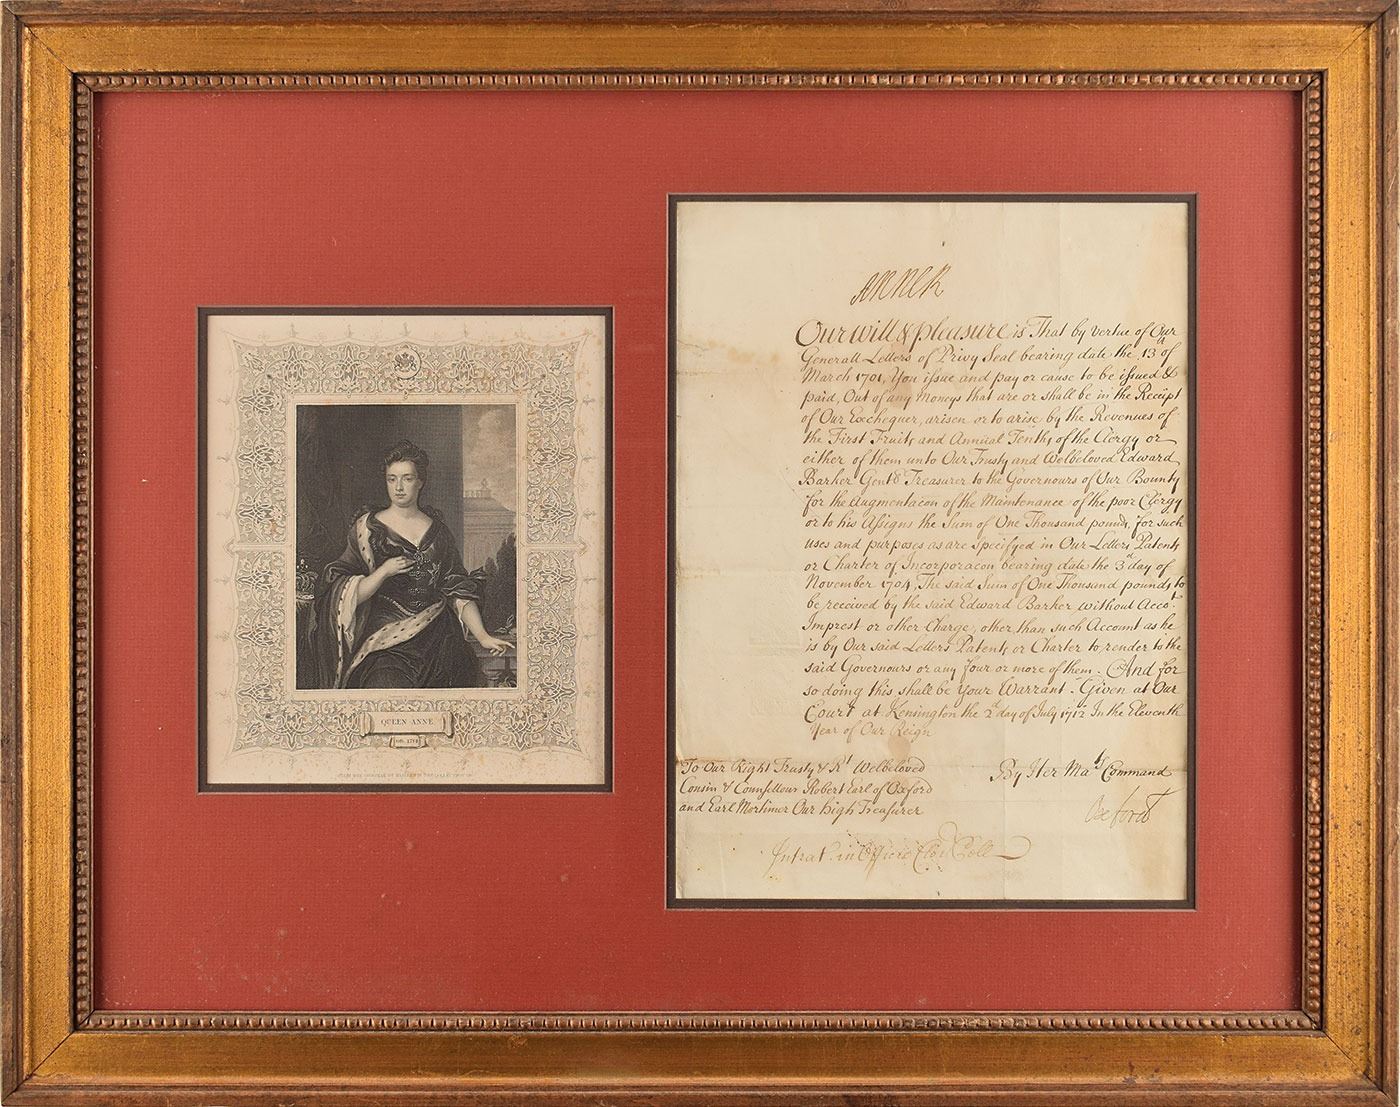 QUEEN ANNE
OB. 1714
ANNE R
Our will & pleasure is That by vertue of Our
Generall Letters of Privy Seal bearing date the 13th of
March 1701, You issue and pay or cause to be issued &
paid, Out of any Moneys that are or shall be in the Receipt
of Our Exchequer, arisen or to arise by the Revenues of
the First Fruits and Annual Tenths of the Clergy or
either of them unto Our Trusty and Welbeloved Edward
Barker Gent Treasurer to the Governours of Our Bounty
for the Augmentacon of the Maintenance of the poor Clergy
or to his Assigns the Sum of One Thousand pounds, for such
uses and purposes as are specifyed in Our Letters Patents
or Charter of Incorporacon bearing date the 3d day of
November 1704, The said Sum of One Thousand pounds to
be received by the said Edward Barker without Accot.
Imprest or other Charge, other than such Account as he
is by Our said Letters Patents or Charter to render to the
said Governours or any four or more of them. And for
so doing this shall be Your Warrant. Given at Our
Court at Kensington the 2d day of July 1712 In the Eleventh
Year of Our Reign
To Our Right Trusty & Rt Welbeloved
Cousin & Counsellour Robert Earl of Oxford
and Earl Mortimer Our high Treasurer
By Her Mats Command
Oxford
Intrat. in Officio